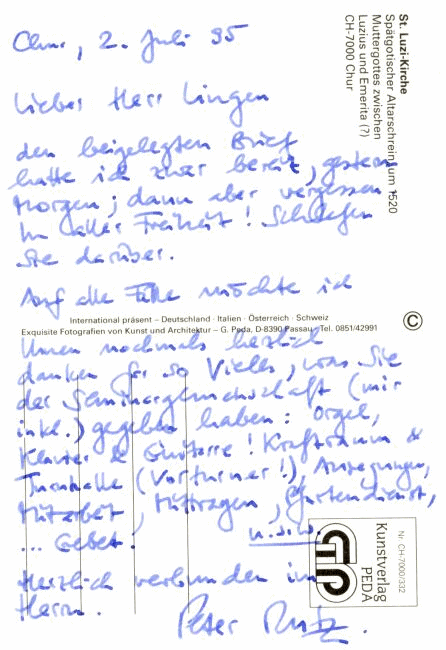 Chur, 2. Juli 95
Lieber Herr Lingen
den beigelegten Brief
hatte ich zwar bereit, gestern
Morgen; dann aber vergessen
In aller Freiheit! Schlafen
Sie darüber.
Auf alle Fälle möchte ich
Ihnen nochmals herzlich
danken für so Vieles, was Sie
der Seminargemeinschaft (mir
inkl.) gegeben haben: Orgel,
Klavier & Guitarre! Kraftraum &
Turnhalle (Vorturner!), Anregungen,
Mitarbeit, Mittragen, Pfortendienst,
... Gebet! u.s.w.
Herzlich verbunden im
Herrn.
Peter
St. Luzi-Kirche
Spätgotischer Altarschrein um 1520
Muttergottes zwischen
Luzius und Emerita (?)
CH-7000 Chur
International präsent – Deutschland · Italien · Österreich · Schweiz
Exquisite Fotografien von Kunst und Architektur – G. Peda, D-8390 Passau, Tel. 0851/42991
©
Nr. CH-7000/332
Kunstverlag
PEDA